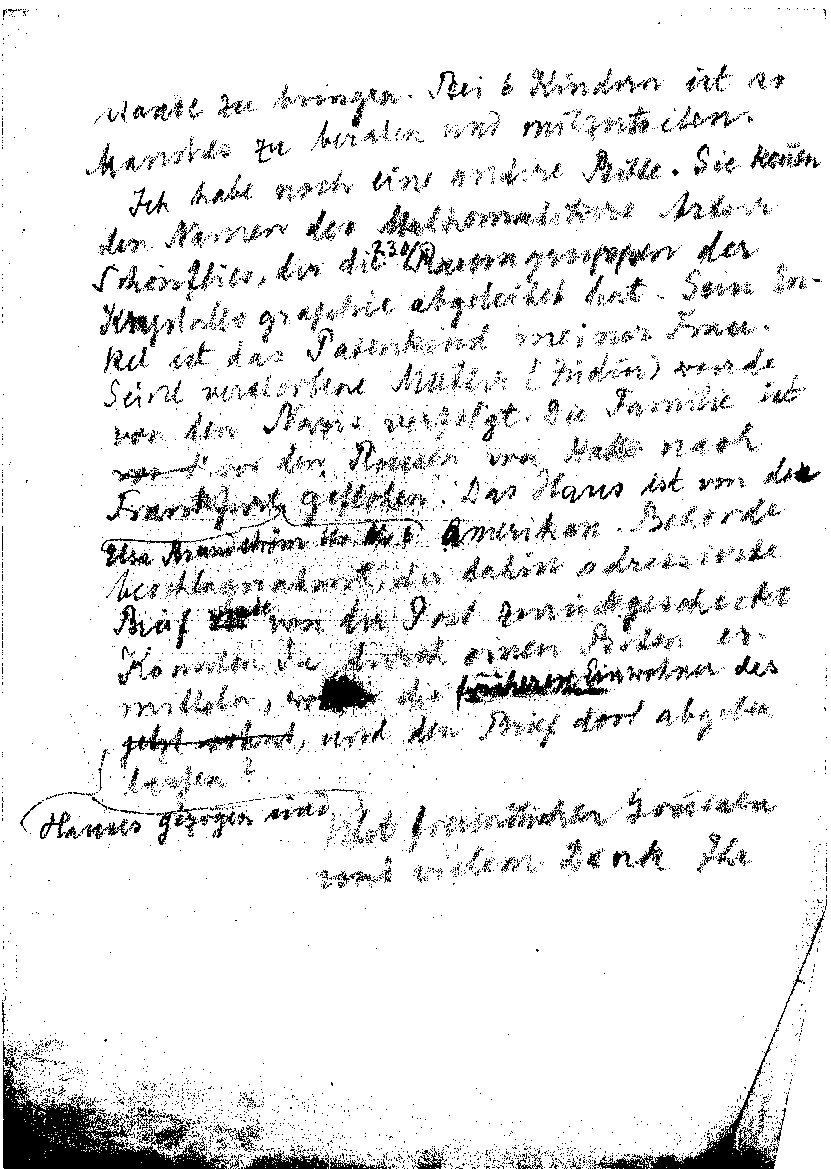 stande zu bringen. Bei 6 Kindern ist es
zu beraten und mitzuteilen.
Ich habe noch eine andere Bitte. Sie kennen
den Namen des Mathematikers Artur
Schönflies, der die 230 Raumgruppen der
Krystallographie abgeleitet hat. Sein En-
kel ist das Patenkind meiner Frau.
Seine verstorbene Mutter (Jüdin) wurde
von den Nazis verfolgt. Die Familie ist
vor den Russen von Halle nach
Frankfurt geflohen. Das Haus ist von der
Elsa Brandström Str. No 6 Amerikan. Behörde
beschlagnahmt, der dahin adressierte
Brief wurde von der Post zurückgeschickt
Könnten Sie durch einen Boten er-
mitteln, wo die früheren Einwohner des
jetzt wohnt, und den Brief dort abgeben
lassen?
Hauses gezogen sind
Mit freundlichen Grüssen
und vielem Dank Ihr